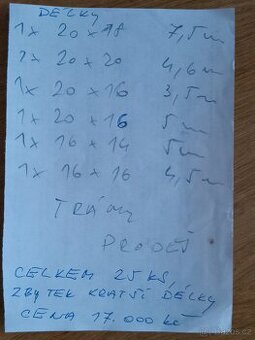 DÉLKY
1x 20 x 18 7,5m
1x 20 x 20 4,6m
1x 20 x 16 3,5m
1x 20 x 16 5m
1x 16 x 14 5m
1x 16 x 16 4,5m
TRÁMY
PRODEJ
CELKEM 25KS,
ZBYTEK KRATŠÍ DÉLKY
CENA 17.000 KČ